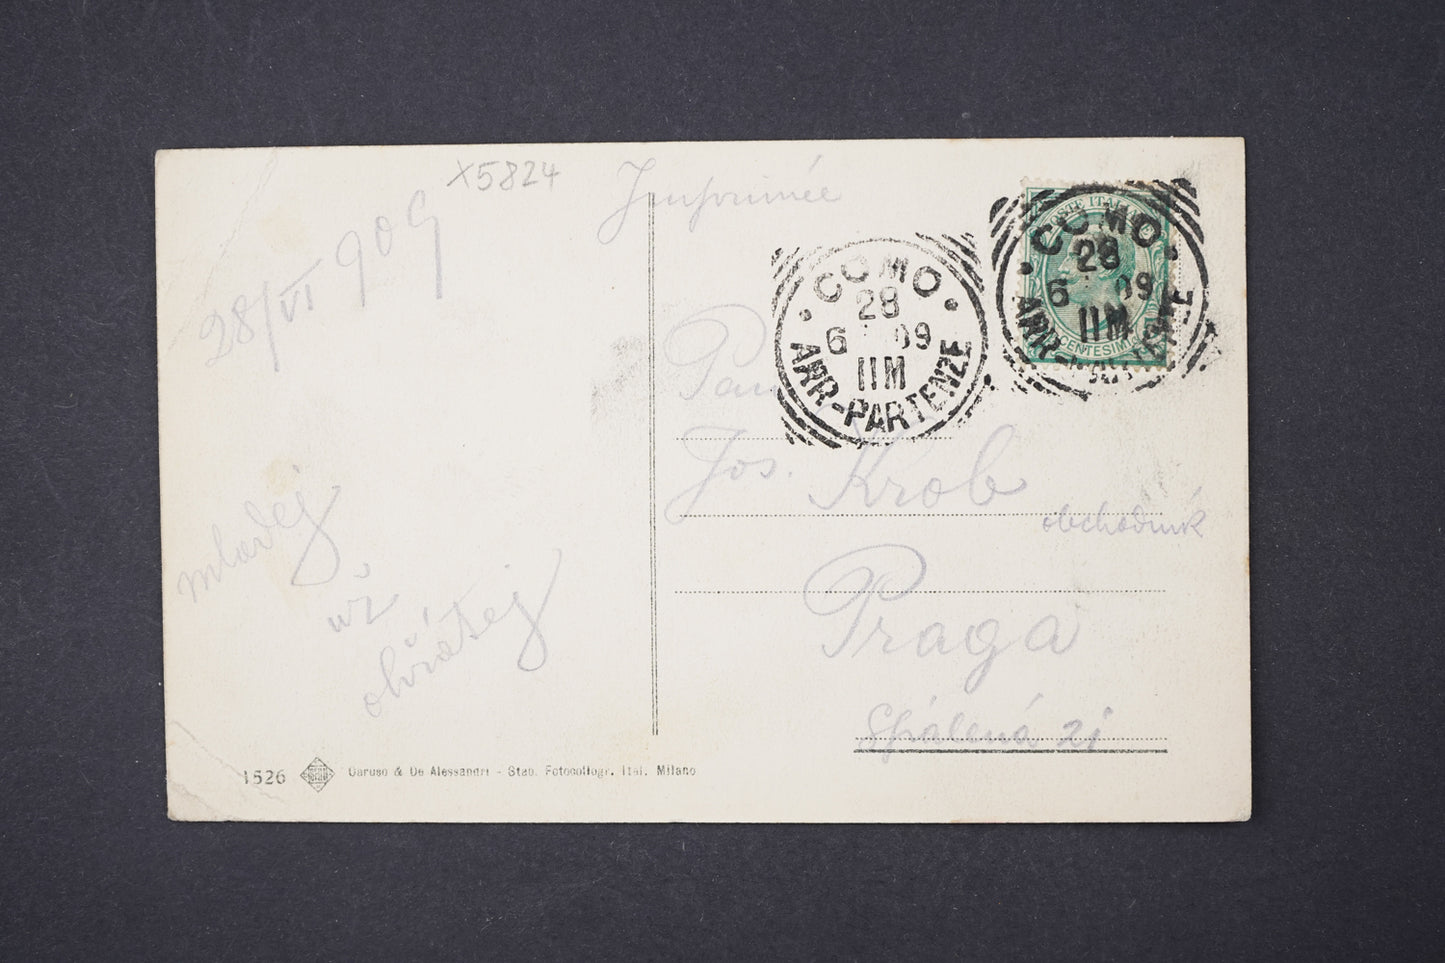 X5824
Imprimée
28/VI 909
POSTE ITAL
CENTESIM
COMO
28
6 09
11M
ARR-PARTENZE
COMO
28
6 09
11M
ARR-PARTENZE
Pan
Jos. Krob
obchodník
Praga
Spálená 21
mladej
už
obrátej
1526 Caruso & De Alessandri - Stab. Fotocollogr. Ital. Milano